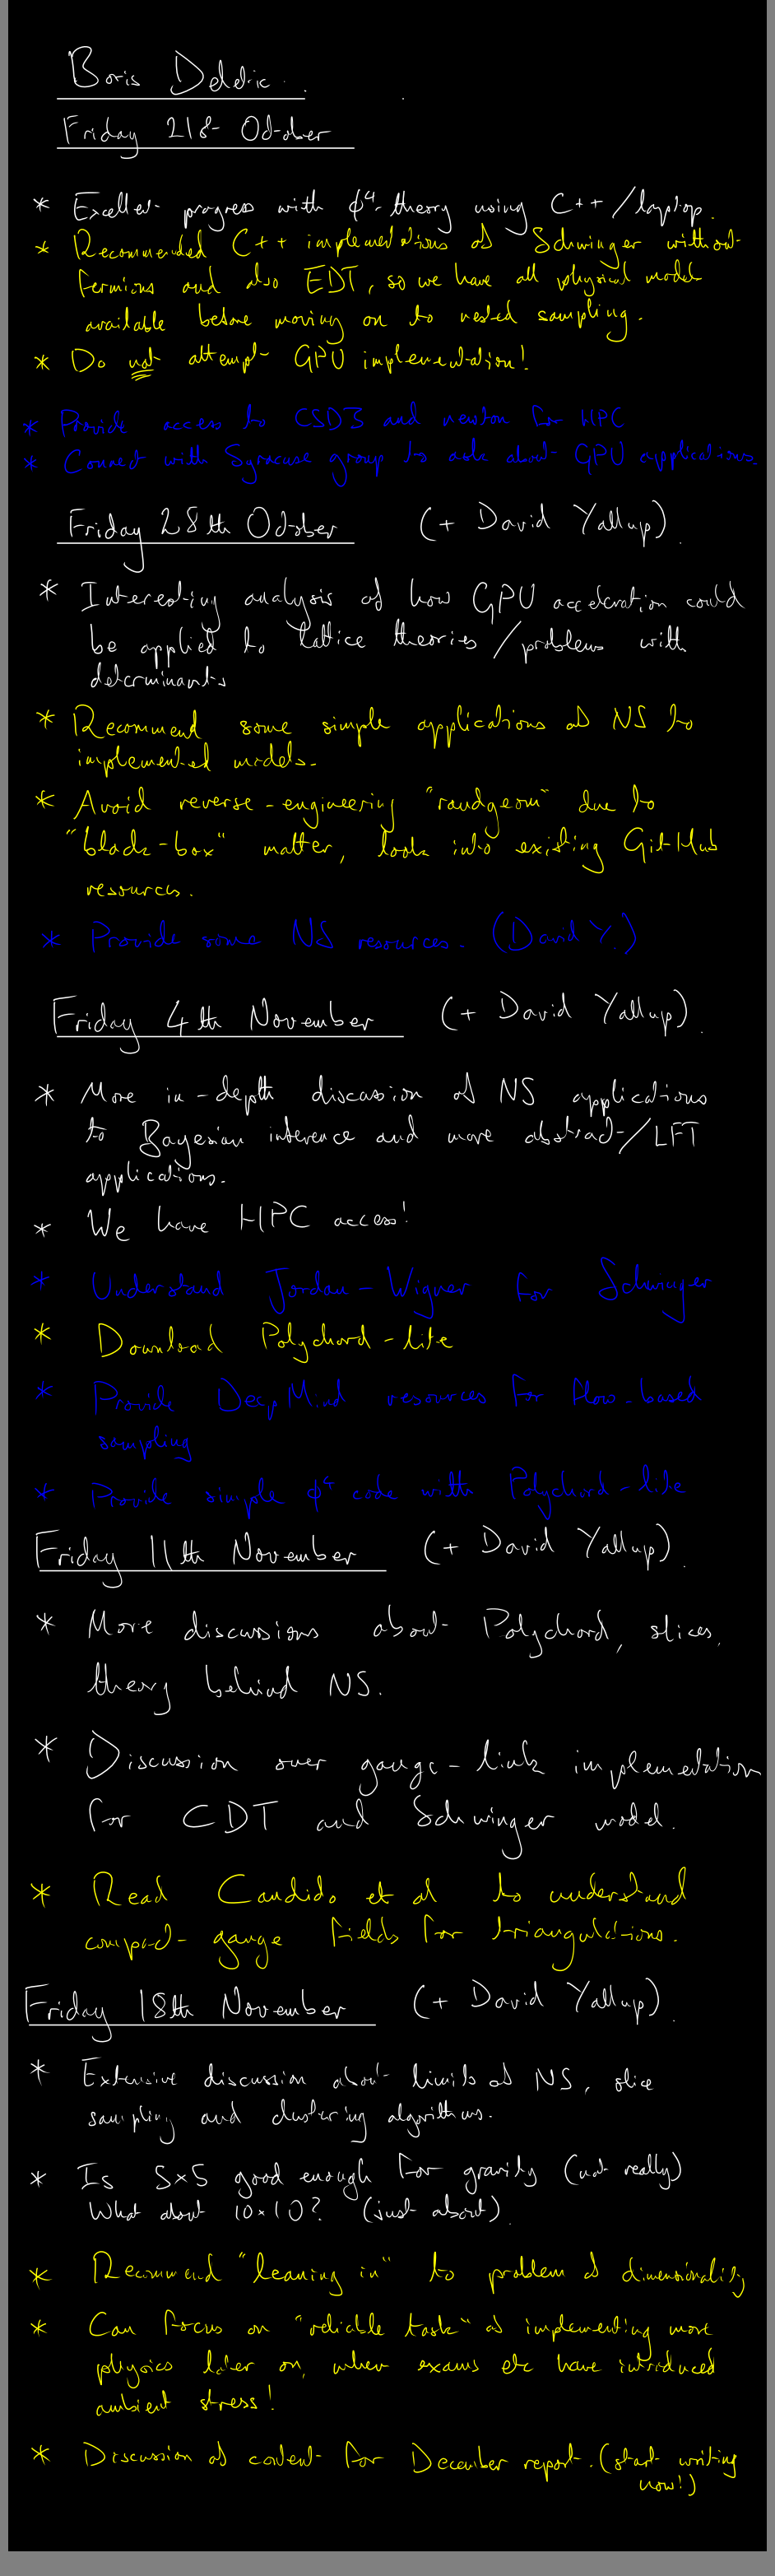 Boris Deldic.
Friday 21st October
* Excellent progress with ϕ⁴ theory using C++/laptop.
* Recommended C++ implementations of Schwinger without
fermions and also EDT, so we have all physical models
available before moving on to nested sampling.
* Do not attempt GPU implementation!
* Provide access to CSD3 and newton for HPC
* Connect with Syracuse group to ask about GPU applications.
Friday 28th October (+ David Yallup).
* Interesting analysis of how GPU acceleration could
be applied to lattice theories/problems with
determinants
* Recommend some simple applications of NS to
implemented models.
* Avoid reverse-engineering "randgeom" due to
"black-box" matter, look into existing GitHub
resources.
* Provide some NS resources. (David Y.)
Friday 4th November (+ David Yallup).
* More in-depth discussion of NS applications
to Bayesian inference and more abstract/LFT
applications.
* We have HPC access!
* Understand Jordan-Wigner for Schwinger
* Download Polychord-lite
* Provide DeepMind resources for flow-based
sampling
* Provide simple ϕ⁴ code with Polychord-lite
Friday 11th November (+ David Yallup).
* More discussions about Polychord, slices,
theory behind NS.
* Discussion over gauge-link implementation
for CDT and Schwinger model.
* Read Candido et al to understand
compact gauge fields for triangulations.
Friday 18th November (+ David Yallup).
* Extensive discussion about limits of NS, slice
sampling and clustering algorithms.
* Is 5×5 good enough for gravity (not really)
What about 10×10? (just about).
* Recommend "leaning in" to problem of dimensionality
* Can focus on "reliable task" of implementing more
physics later on, when exams etc have introduced
ambient stress!
* Discussion of content for December report. (start writing
now!)